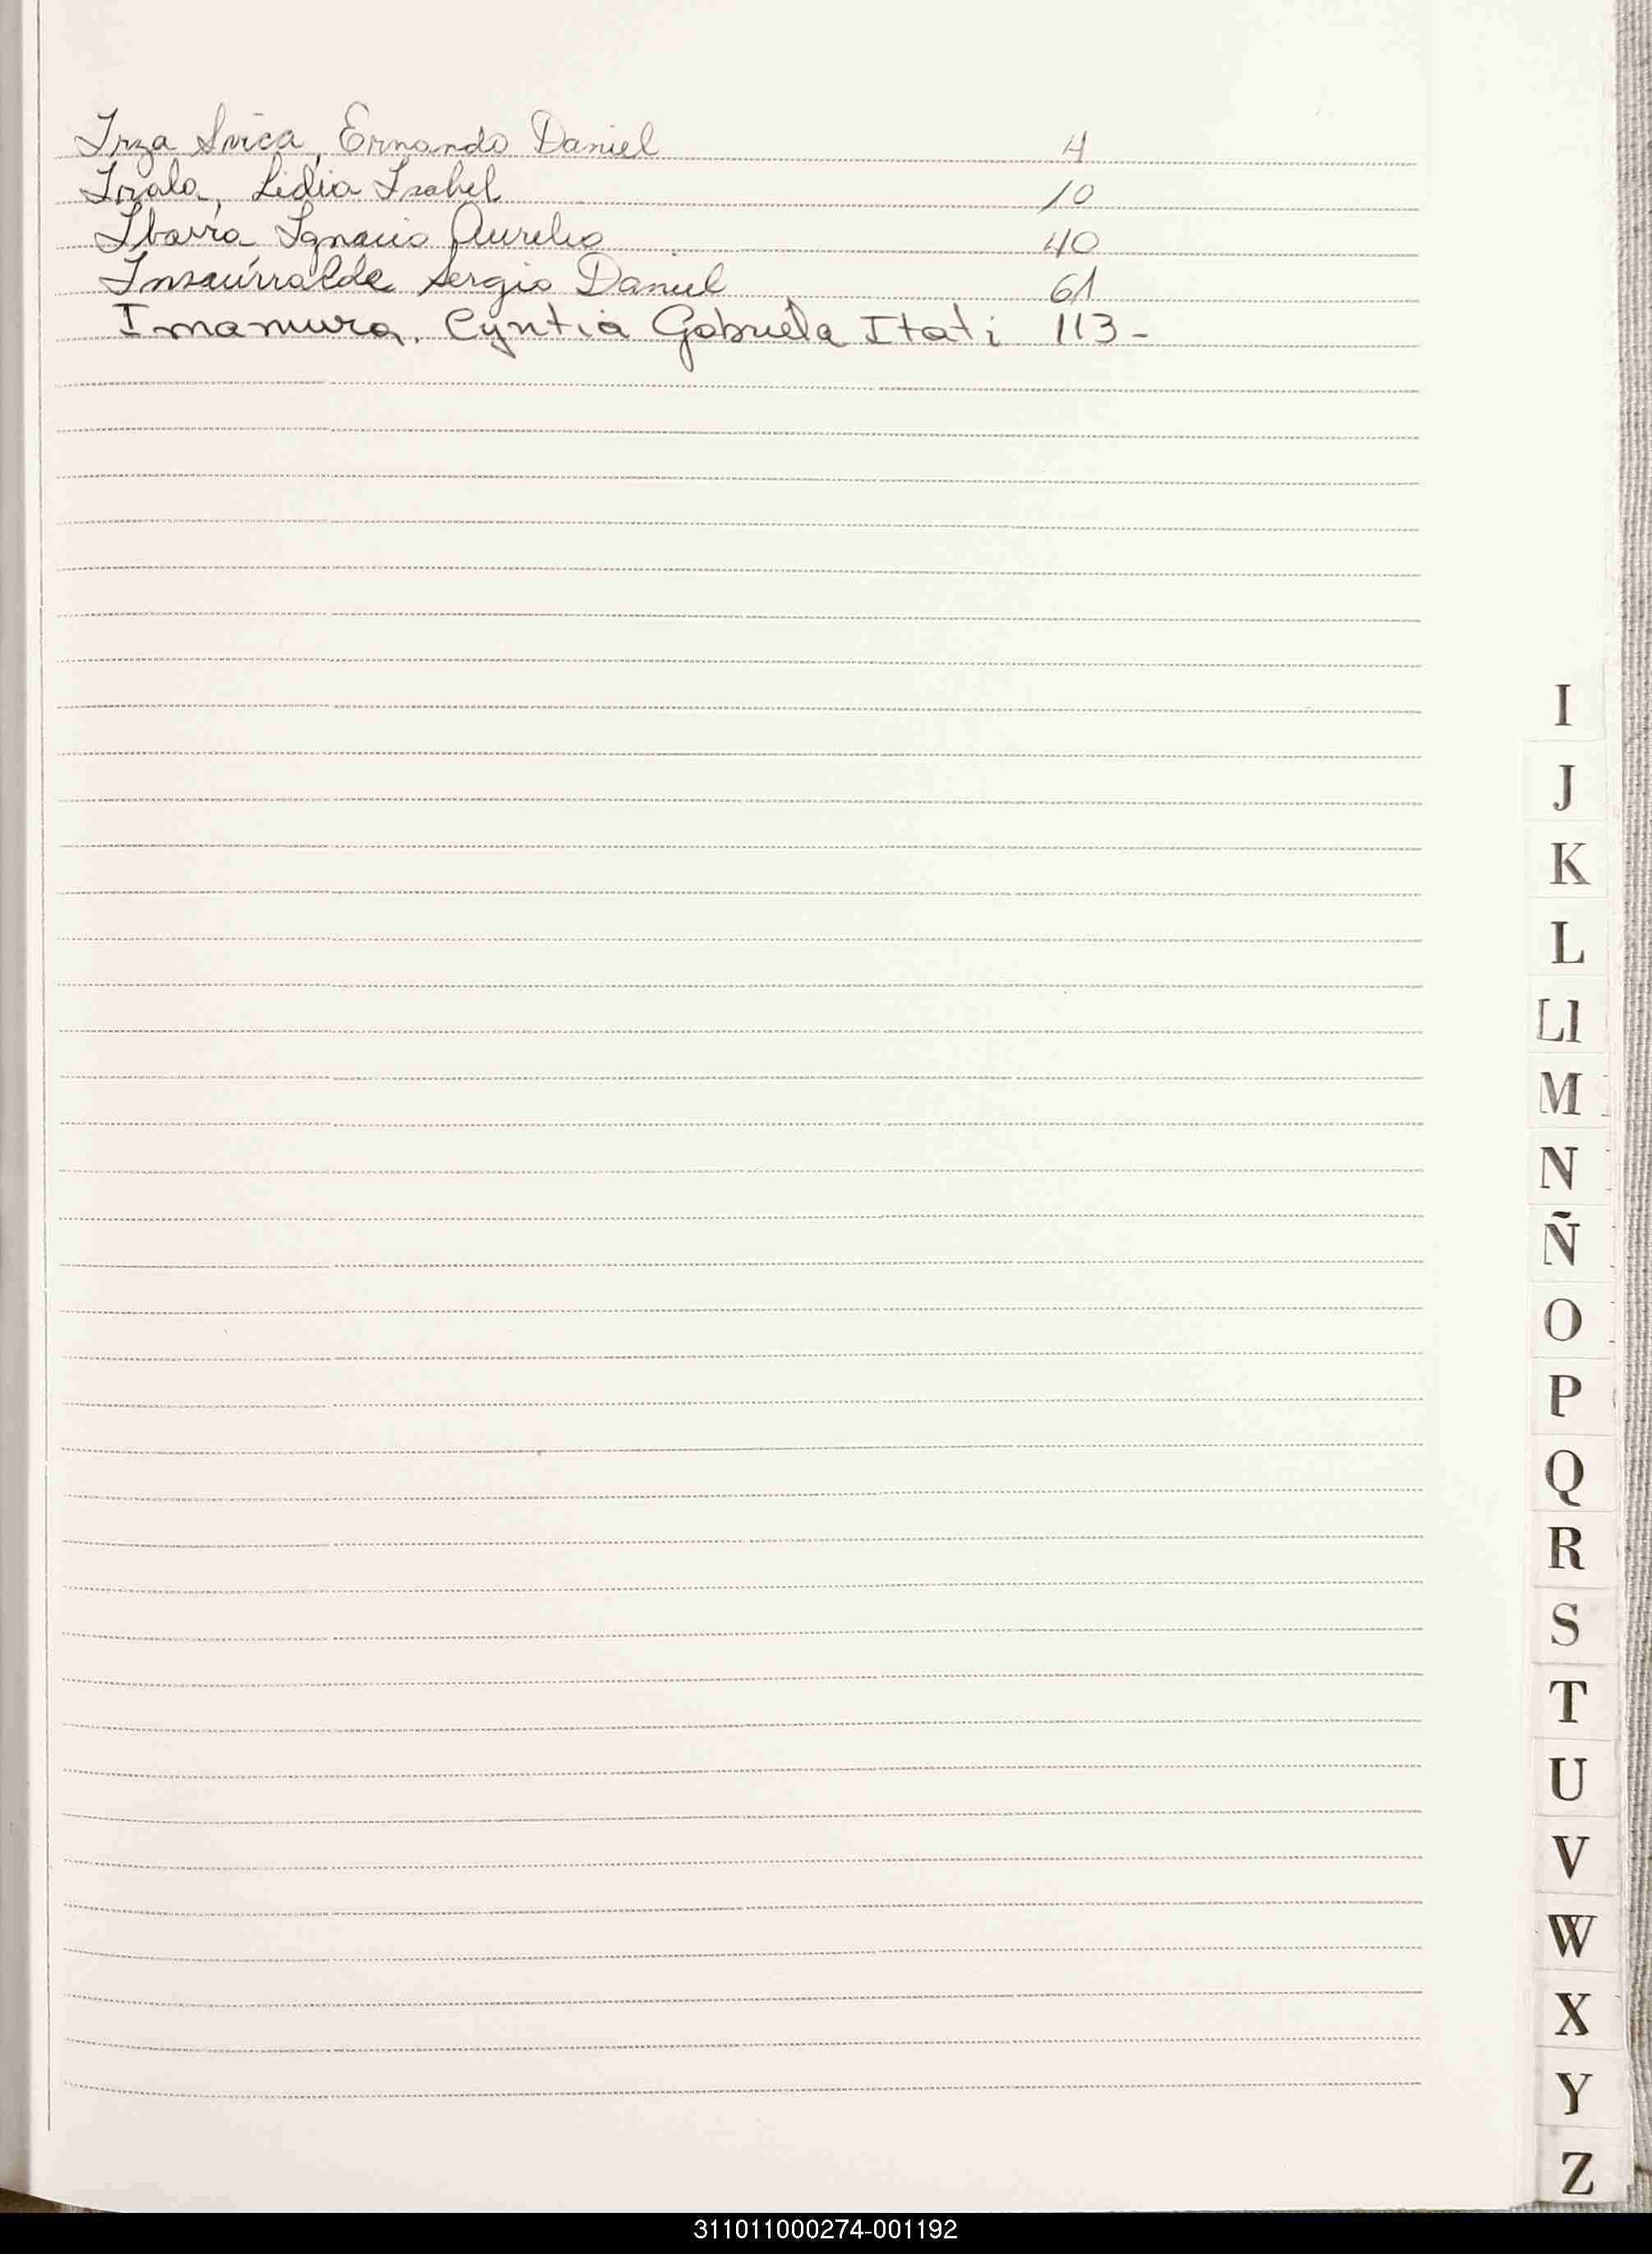 Irza Svica, Ernando Daniel 4
Irala, Lidia Isabel 10
Ibarra Ignacio Aurelio 40
Insaurralde Sergio Daniel 61
Imamura, Cyntia Gabriela Itati 113-
I
J
K
L
Ll
M
N
Ñ
O
P
Q
R
S
T
U
V
W
X
Y
Z
311011000274-001192